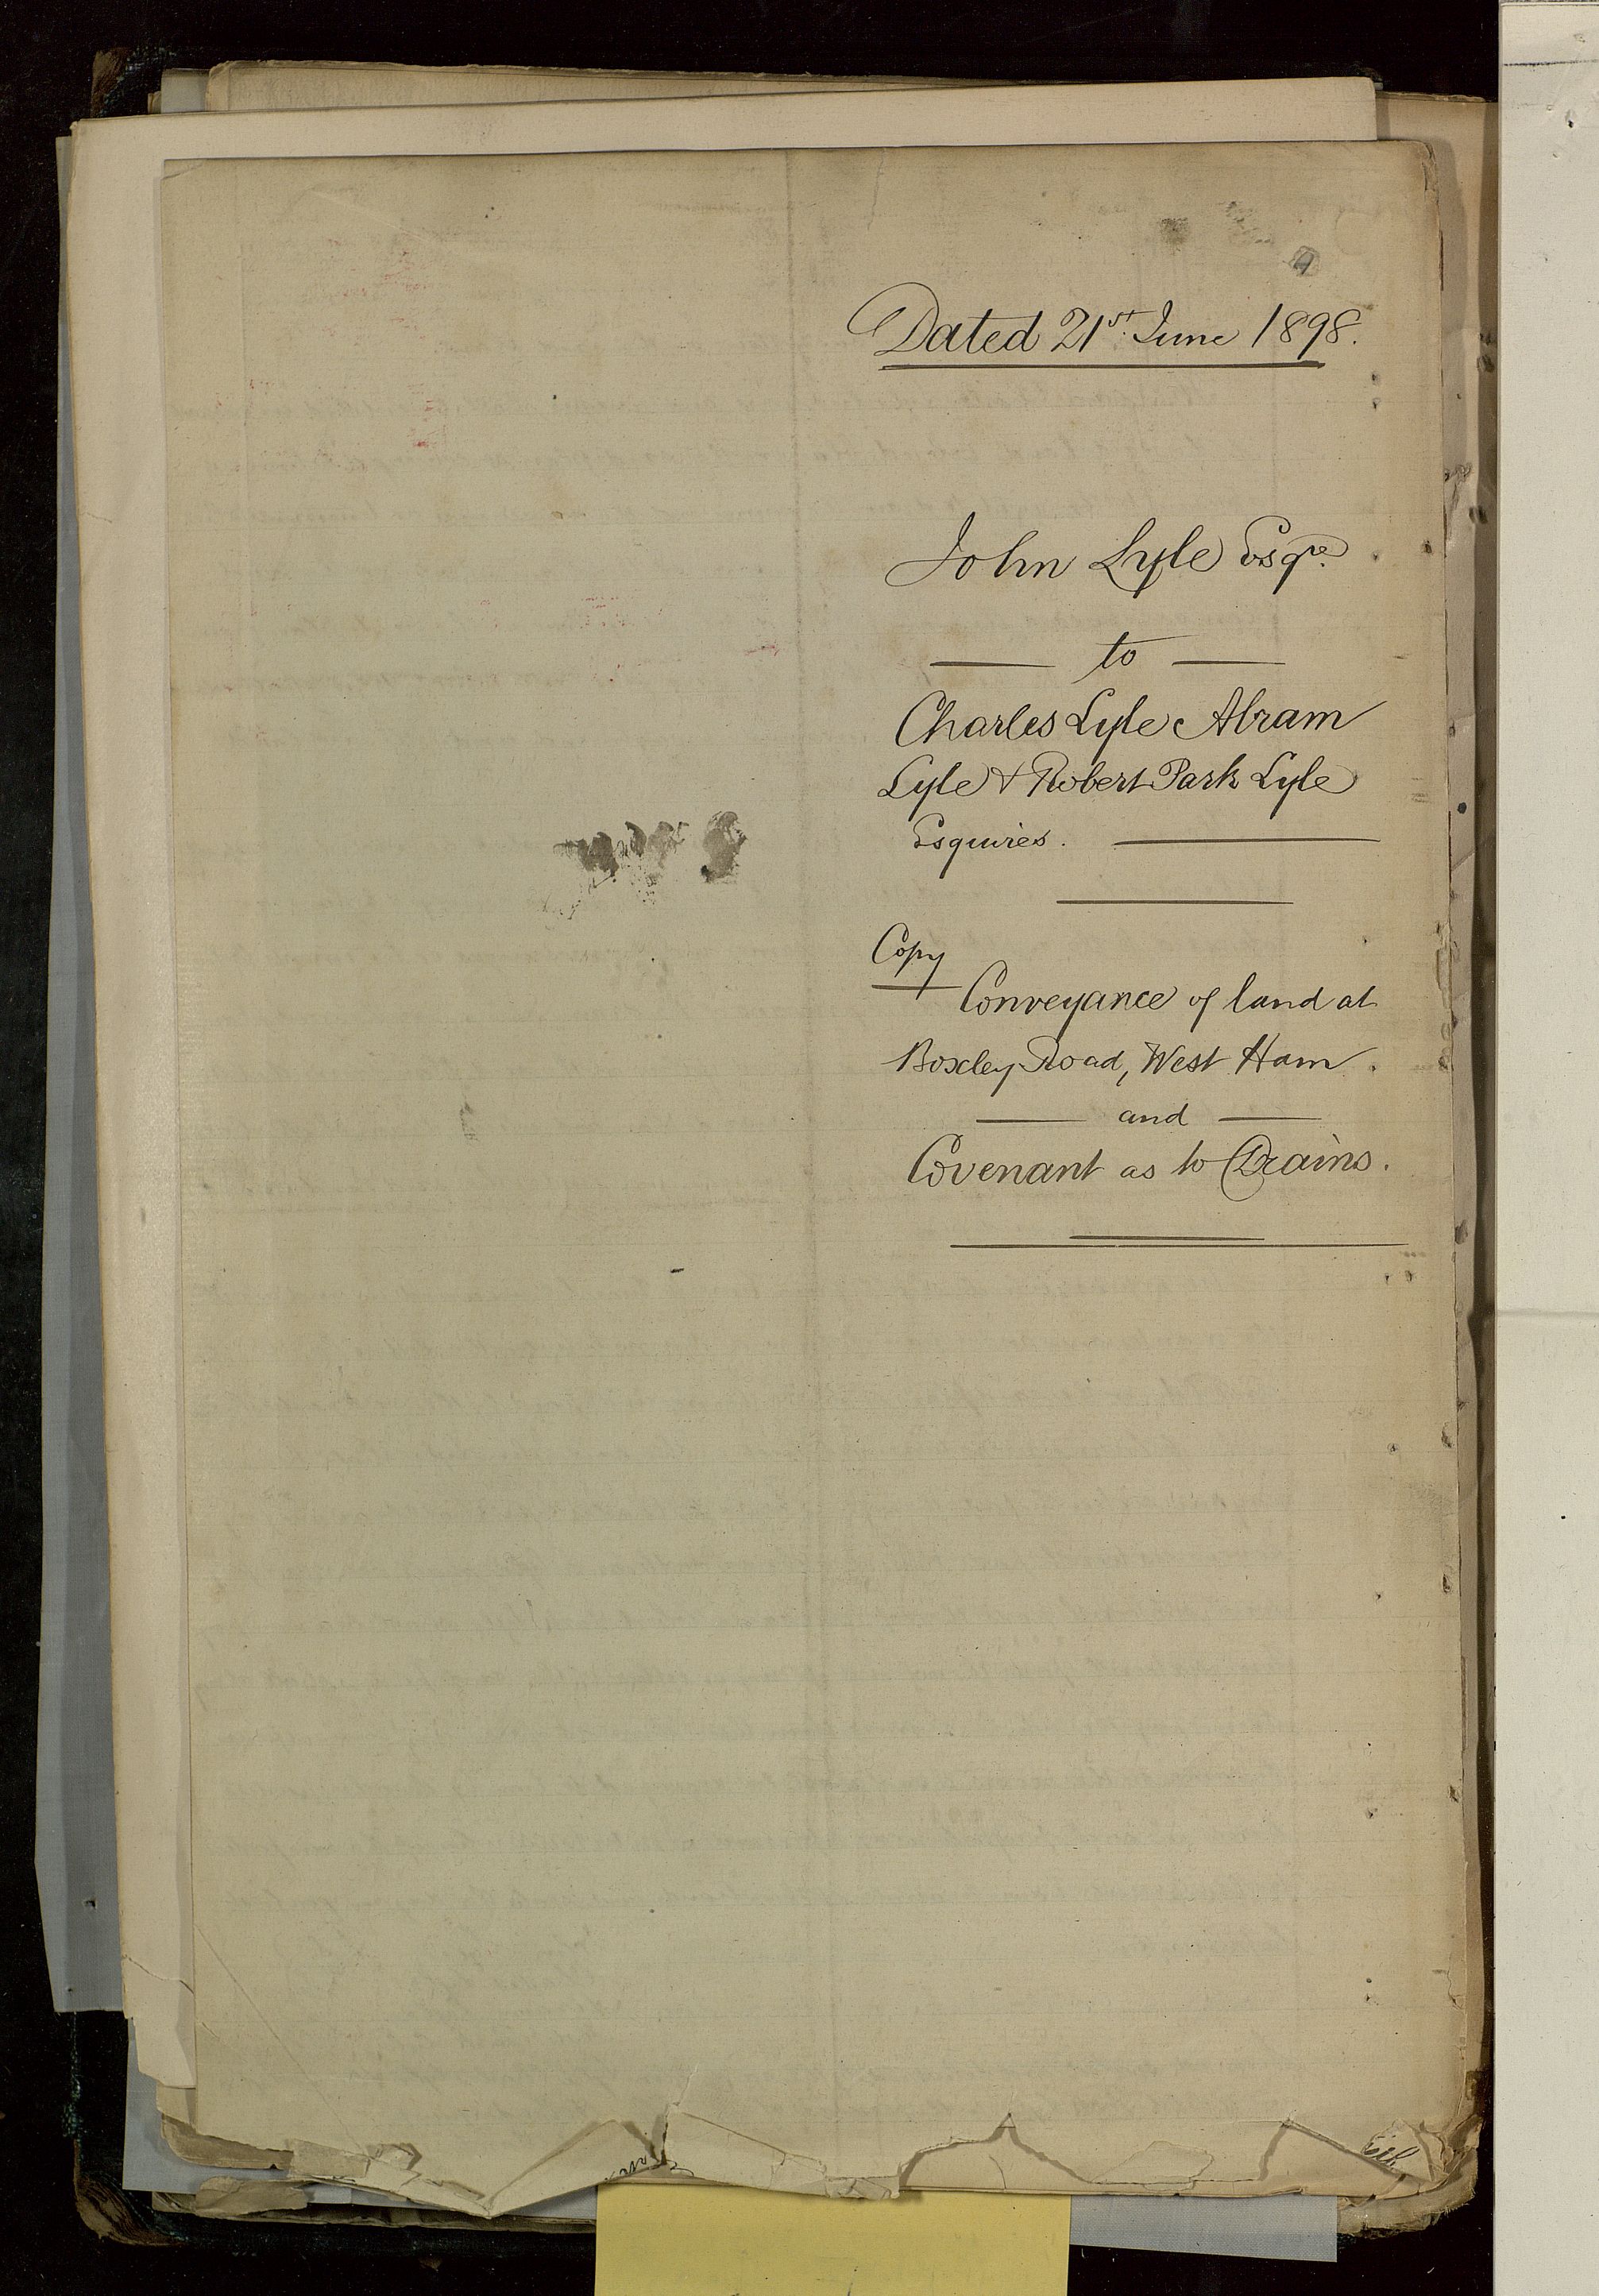 Dated 21st. June 1898.
John Lyle Esqre.
to
Charles Lyle Abram
Lyle & Robert Park Lyle
Esquires.
Copy
Conveyance of land at
Boxley Road, West Ham.
and
Covenant as to Drains.